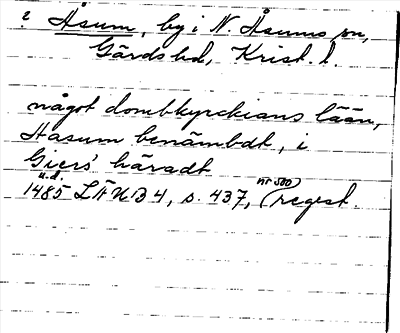 ? Åsum, by i N. Åsums sn,
Gärds hd, Krist. l.
något dombkyrckians lään,
Hasum benämbdt, i
Giers' häradt
u.d.
1485 LÄUB 4, s. 437, (nr 500) regest.